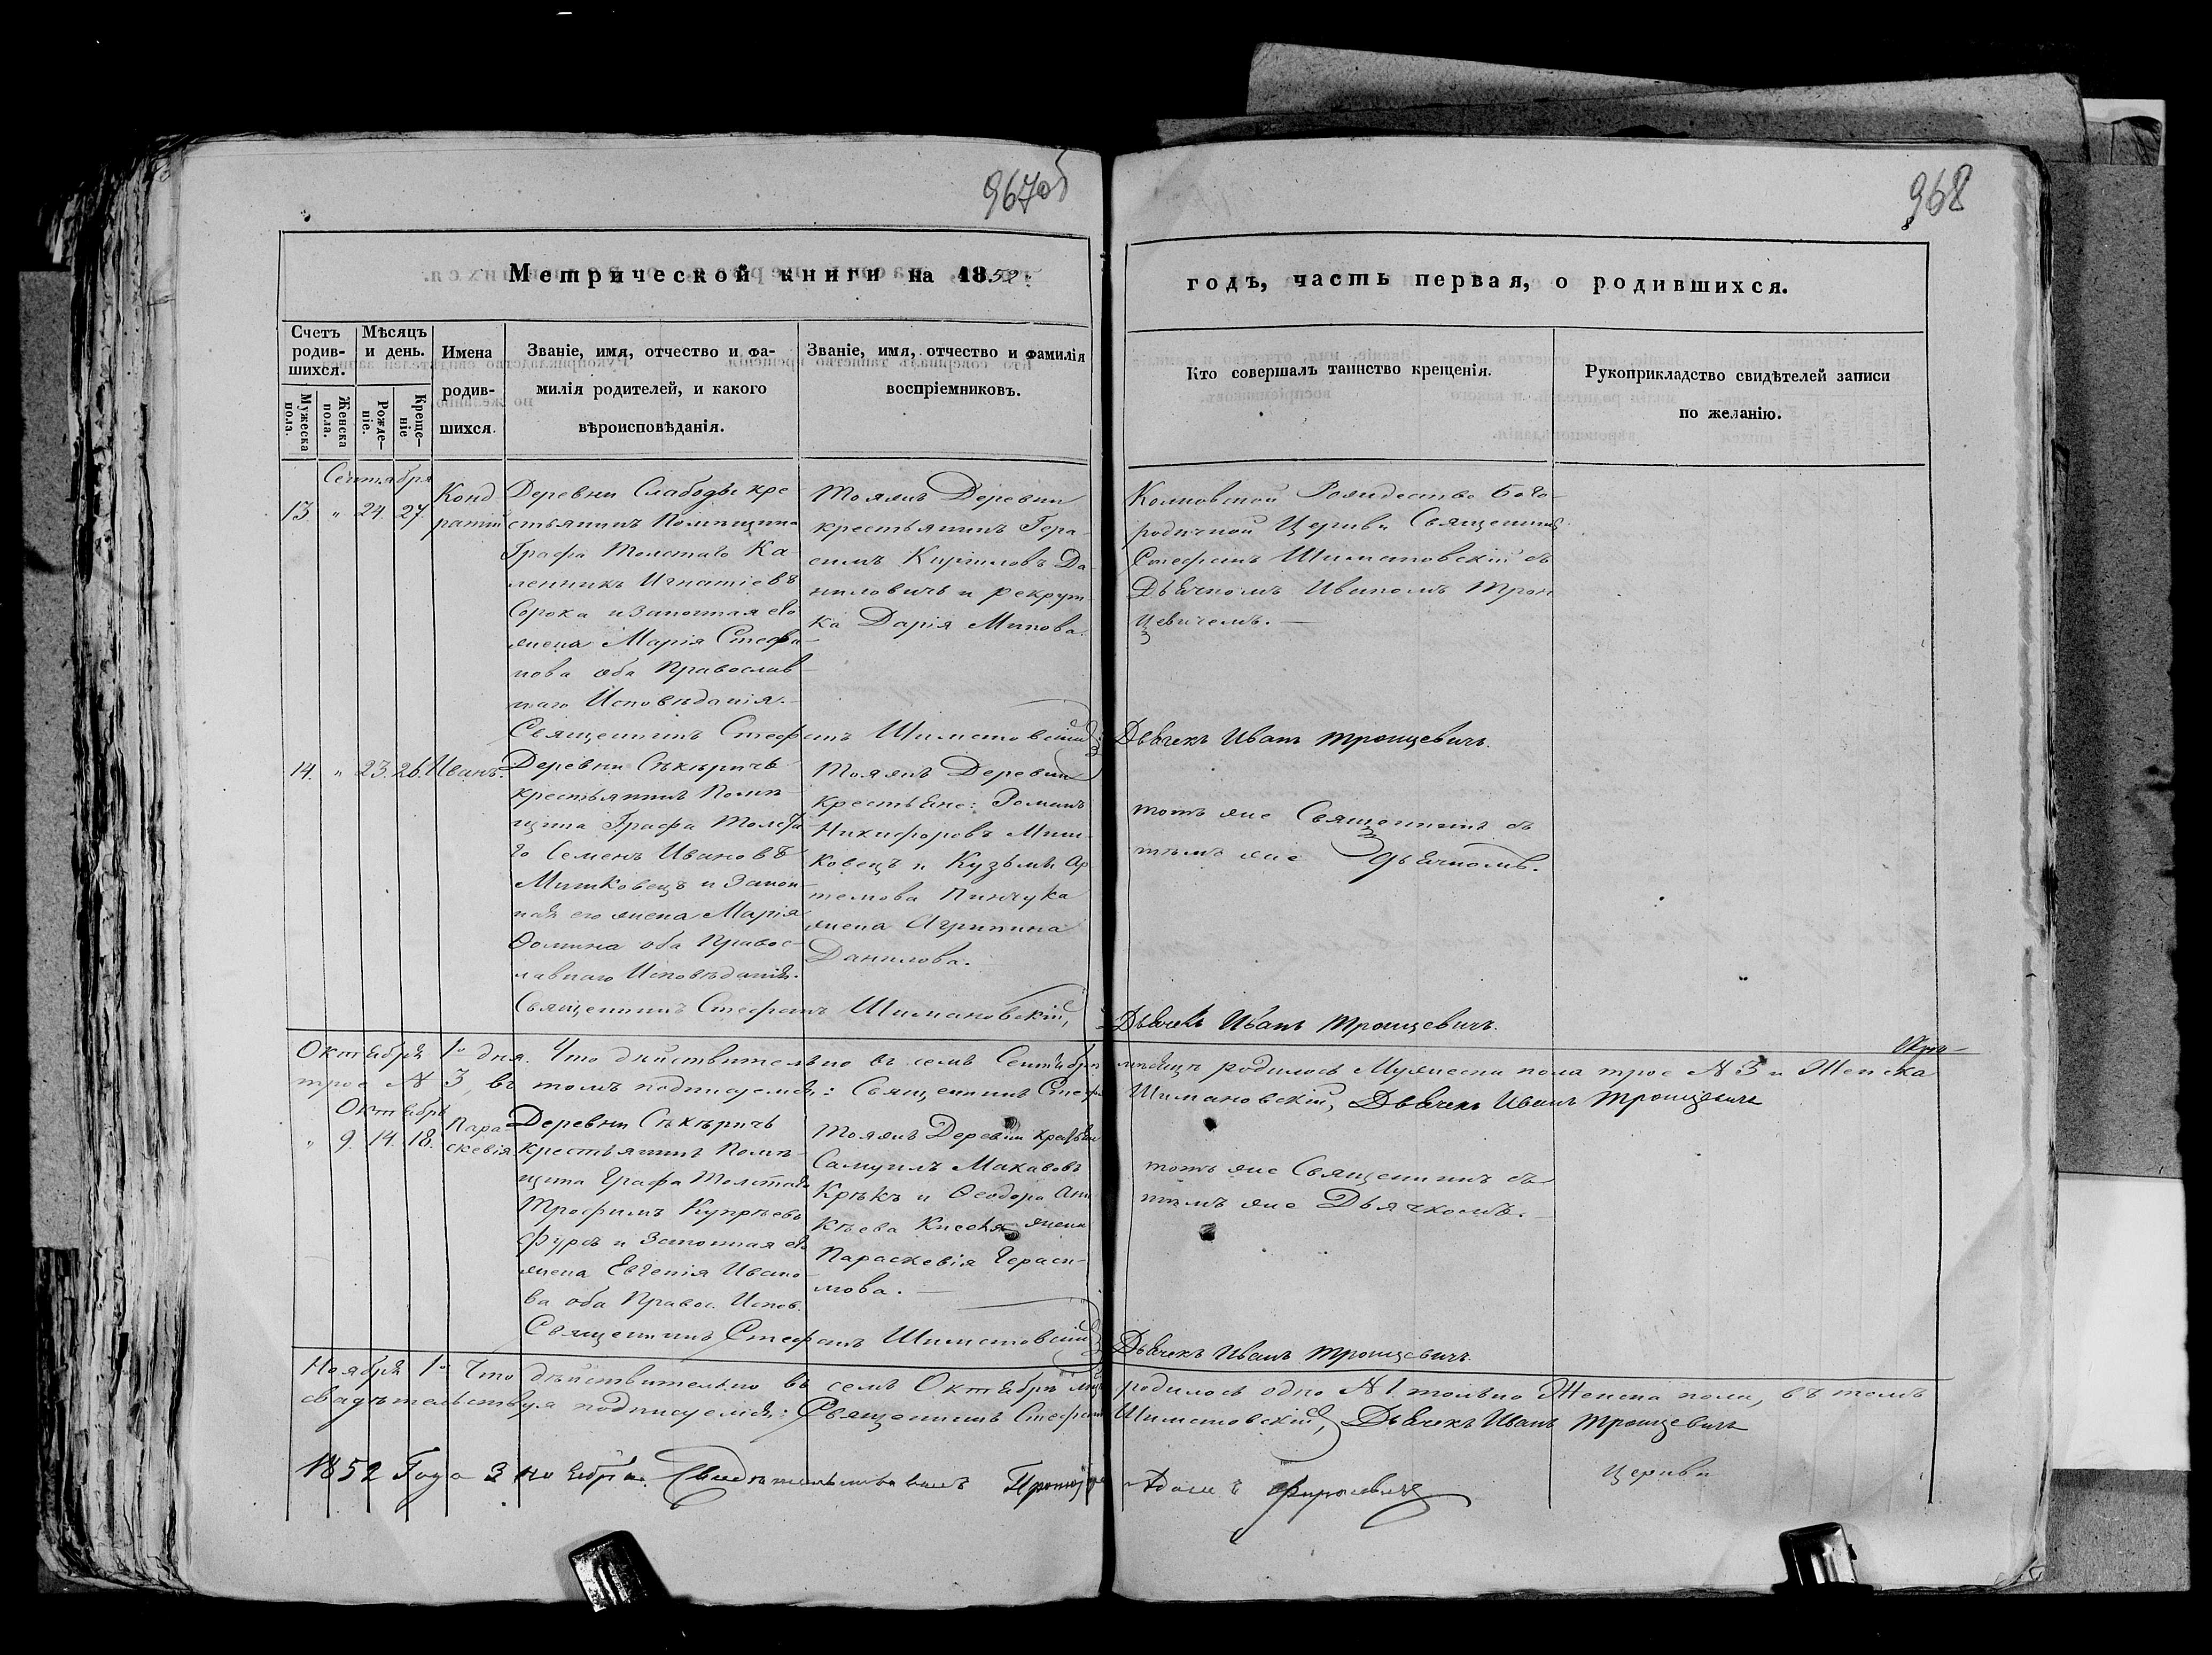 967об
968
Метрической книги на 1852
годъ, часть первая, о родившихся.
Счетъ родив-шихся.
Мужеска пола.
Женска пола.
Мѣсяцъ и день.
Рожде-ніе.
Креще-ніе
Имена
родив-
шихся.
Званіе, имя, отчество и фа-
милія родителей, и какого
вѣроисповѣданія.
Званіе, имя, отчество и фамилія
воспріемниковъ.
Кто совершалъ таинство крещенія.
Рукоприкладство свидѣтелей записи
по желанію.
Сентября
13. " 24. 27.
Конд
ратій
Деревни Слабоды кре
стьянинъ Помѣщика
Графа Толстаго Ка-
ленникъ Игнатіевъ
Сорока и Законная его
жена Марія Стефа-
нова оба Православ-
наго Исповѣданія.
Тояжъ Деревни
крестьянинъ Гера-
симъ Кириловъ Да-
ниловичъ и рекрут-
ка Дарія Минова.
Рождество Бого-
родичной Церкви Священникъ
Стефанъ Шимановскій съ
Дьячкомъ Иваномъ Трон
цевичемъ.
Священникъ Стефанъ Шимановскій
Дьячекъ Иванъ Тронцевичъ.
14. " 23. 26. Иванъ.
Деревни Сѣкѣричъ
крестьянинъ Помѣ-
щика Графа Толста
го Семенъ Ивановъ
Мишковецъ и Закон-
ная его жена Марія
Ѳомина оба Правос-
лавнаго Исповѣданія.
Тояжъ Деревни
крестьяне: Романъ
Никифоровъ Миш-
ковецъ и Кузьмы Ар
темова Пинчука
жена Агрипина
Данилова.
тотъ же Священникъ съ
тѣмъ же дьячкомъ.
Священникъ Стефанъ Шимановскій,
Дьячекъ Иванъ Тронцевичъ.
Октября 1го дня. Что дѣйствительно въ семъ Сентябрѣ мѣсяцѣ родилось Мужеска пола трое N 3 и Женска
трое N 3, въ томъ подписуемся: Священникъ Стефанъ Шимановскій, Дьячекъ Иванъ Тронцевичъ
Октябрь
" 9. 14. 18.
Пара
скевія
Деревни Сѣкѣричъ
крестьянинъ Помѣ-
щика Графа Толстаго
Трофимъ Купріевъ
и Законная его
жена Евгенія Ивано-
ва оба Правос. Испов.
Тояжъ Деревни крестьяне
Самуилъ Макаровъ
и Ѳеодора
жена
Параскевія Гераси-
мова.
тотъ же Священникъ съ
тѣмъ же Дьячкомъ.
Священникъ Стефанъ Шимановскій
Дьячекъ Иванъ Тронцевичъ.
Ноября 1го Что дѣйствительно въ семъ Октябрѣ мцѣ родилось одно N 1. только Женска пола, въ томъ
свидѣтельствуя подписуемся: Священникъ Стефанъ Шимановскій, Дьячекъ Иванъ Тронцевичъ
1852 Года 3 Ноября. Свидѣтельствовалъ Протоіерей Адамъ
Церкви